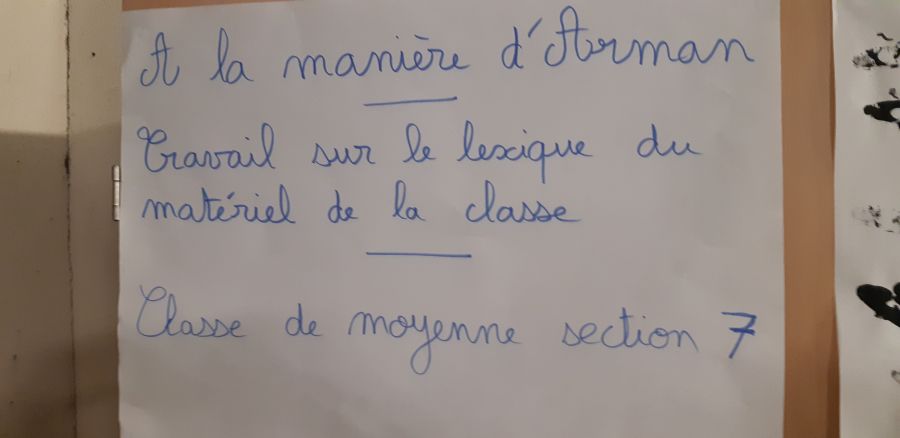 A la manière d'Arman
Travail sur le lexique du
matériel de la classe
Classe de moyenne section 7